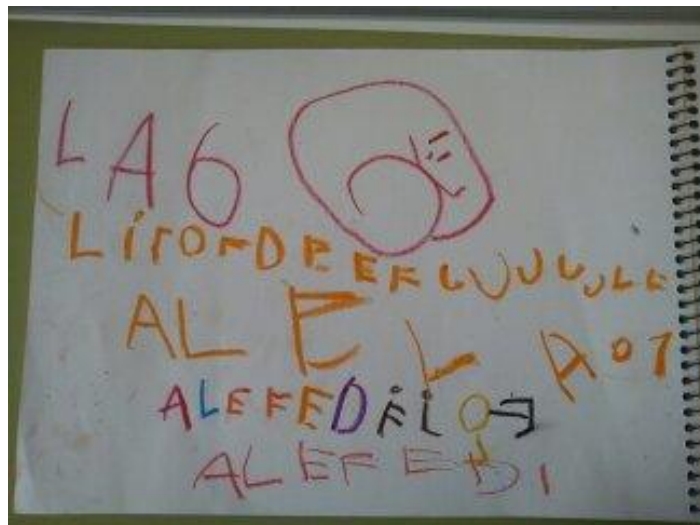 LA6
LITOFDPEEFLUUUUULE
ALEL A07
ALEFEDFLOJ
ALEFEDI